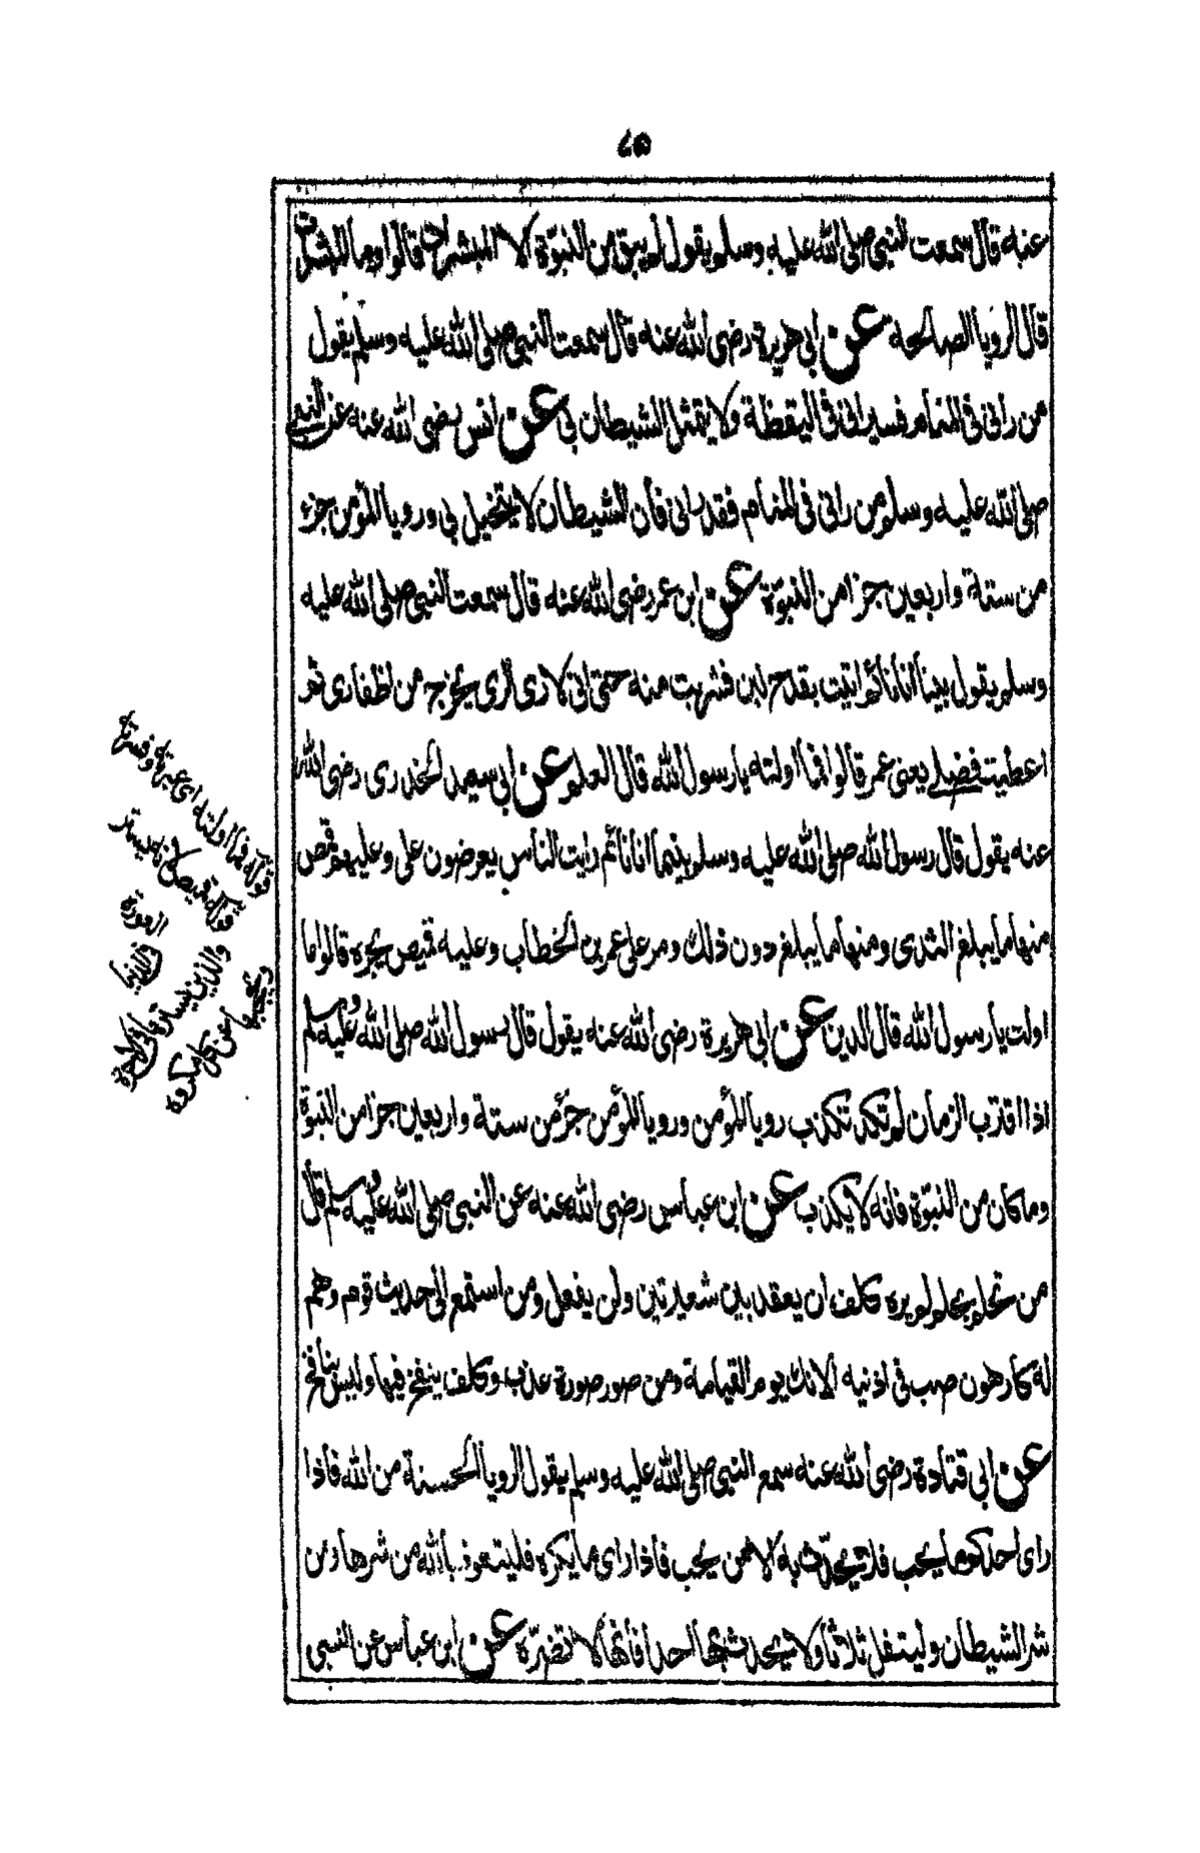 ٨٥
عنه قال سمعت النبي صلى الله عليه وسلم يقول لم يبق من النبوّة الا المبشرات قالوا وما المبشرات
قال الرؤيا الصالحة عن ابي هريرة رضى الله عنه قال سمعت النبي صلى الله عليه وسلم يقول
من رأني في المنام فسيراني في اليقظة ولا يتمثل الشيطان بي عن انس رضى الله عنه عن النبي
صلى الله عليه وسلم من راني في المنام فقد راني فان الشيطان لا يتخيل بي ورويا المؤمن جزء
من ستة واربعين جزا من النبوّة عن ابن عمر رضى الله عنه قال سمعت النبي صلى الله عليه
وسلم يقول بينا انا نائم اتيت بقدح لبن فشربت منه حتى اني لارى الرى يخرج من اظفارى ثم
اعطيت فضلي يعنى عمر قالوا فما اولته يا رسول الله قال العلم عن ابي سعيد الخدرى رضى الله
عنه يقول قال رسول الله صلى الله عليه وسلم بينما انا نائم رايت الناس يعرضون على وعليهم قمص
منها ما يبلغ الثدى ومنها ما يبلغ دون ذلك ومر على عمر بن الخطاب وعليه قميص يجره قالوا ما
اولت يا رسول الله قال الدين عن ابي هريرة رضى الله عنه يقول قال رسول الله صلى الله عليه وسلم
اذا اقترب الزمان لم تكد تكذب رويا المؤمن ورويا المؤمن جزؤ من ستة واربعين جزا من النبوّة
وما كان من النبوّة فانه لا يكذب عن ابن عباس رضى الله عنه عن النبي صلى الله عليه وسلم قال
من تحلم بحلم لم يره كلف ان يعقد بين شعيرتين ولن يفعل ومن استمع الى حديث قوم وهم
له كارهون صب في اذنيه الانك يوم القيامة ومن صور صورة عذب وكلف ينفخ فيها وليس بنافخ
عن ابي قتادة رضى الله عنه سمع النبي صلى الله عليه وسلم يقول الرويا الحسنة من الله فاذا
راى احدكم ما يحب فلا يحدّث به الا من يحب فاذا راى ما يكره فليتعوذ بالله من شرها ومن
شر الشيطان وليتفل ثلاثا ولا يحدث بها احدا فانها لا تضرّه عن ابن عباس عن النبي
قوله فما اولته اى عبرته وفسرته
قوله قميص لانه يستر
العورة
في الدنيا
والدين يستره في الاخرة
ويحجبها عن كل مكروه